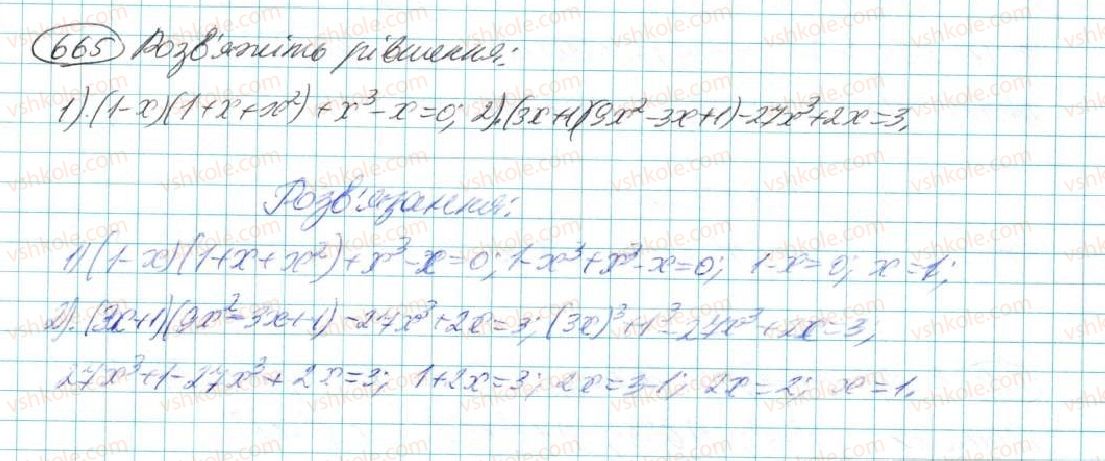 665 Розв'яжіть рівняння:
1).(1-x)(1+x+x²)+x³-x=0; 2).(3x+1)(9x²-3x+1)-27x³+2x=3.
Розв'язання:
1)(1-x)(1+x+x²)+x³-x=0; 1-x³+x³-x=0; 1-x=0; x=1;
2).(3x+1)(9x²-3x+1)-27x³+2x=3; (3x)³+1³-27x³+2x=3;
27x³+1-27x³+2x=3; 1+2x=3; 2x=3-1; 2x=2; x=1.